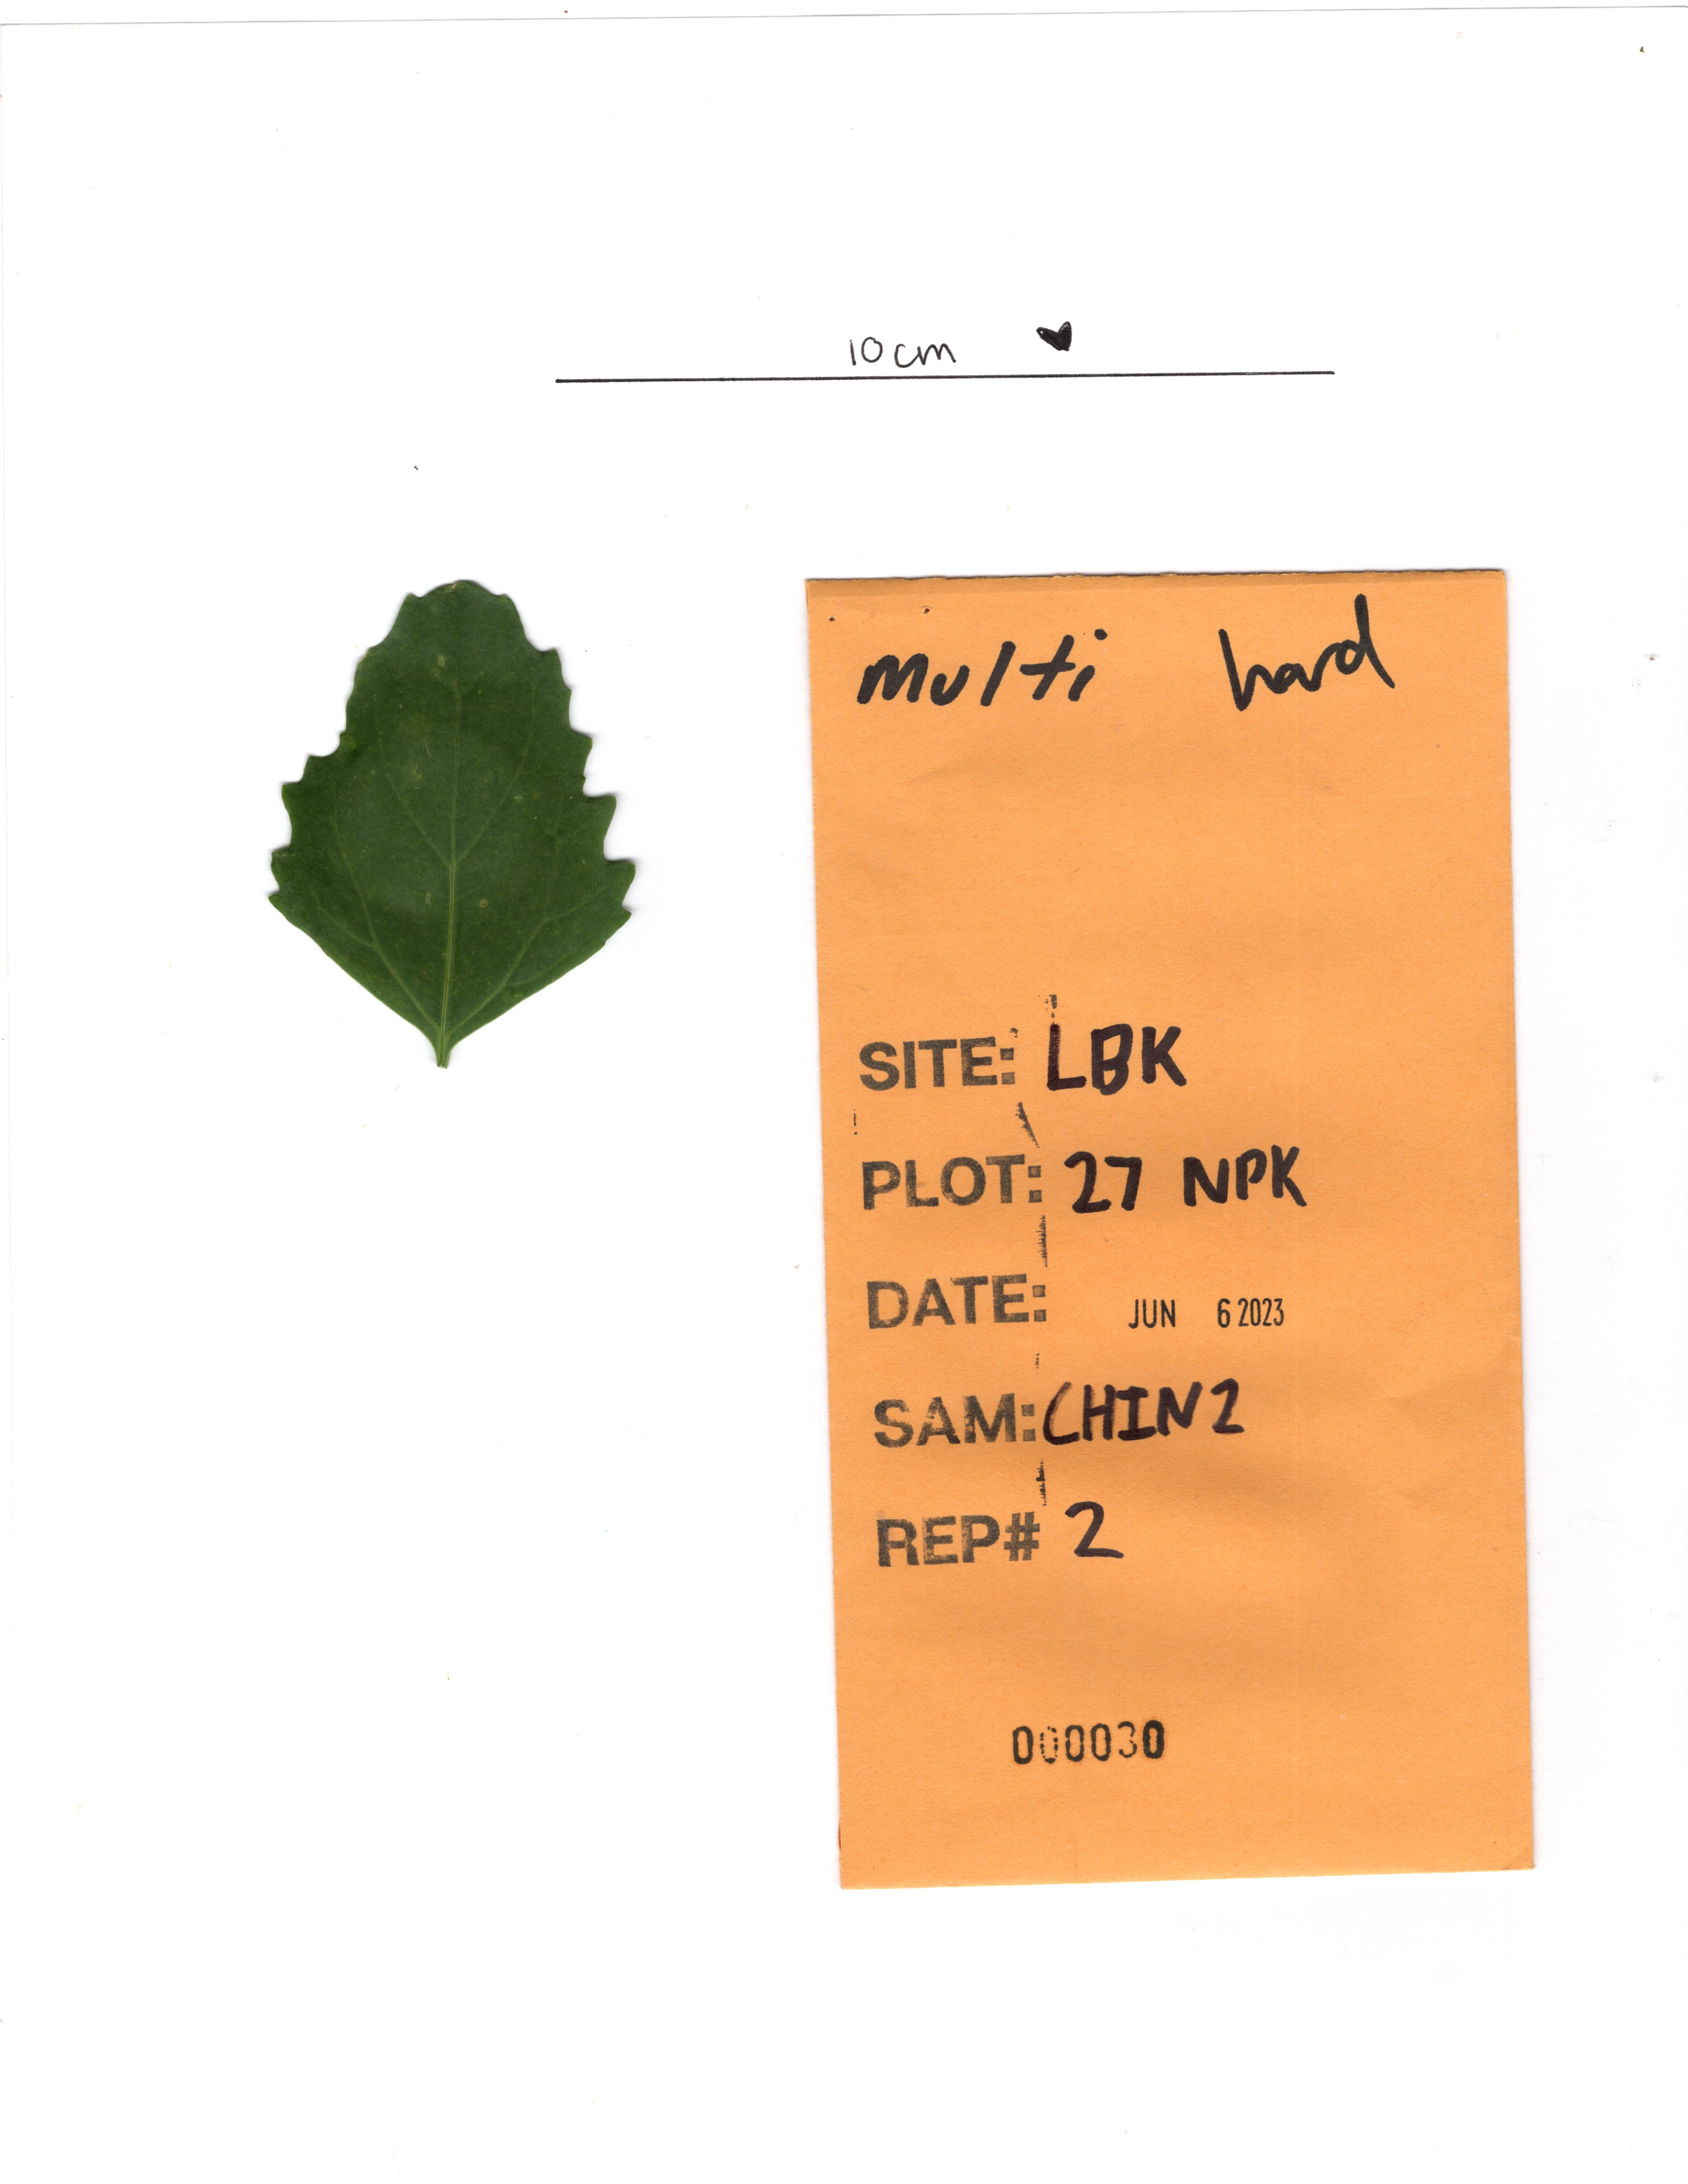 10cm
multi hard
SITE: LBK
PLOT: 27 NPK
DATE: JUN 6 2023
SAM: CHIN2
REP# 2
000030